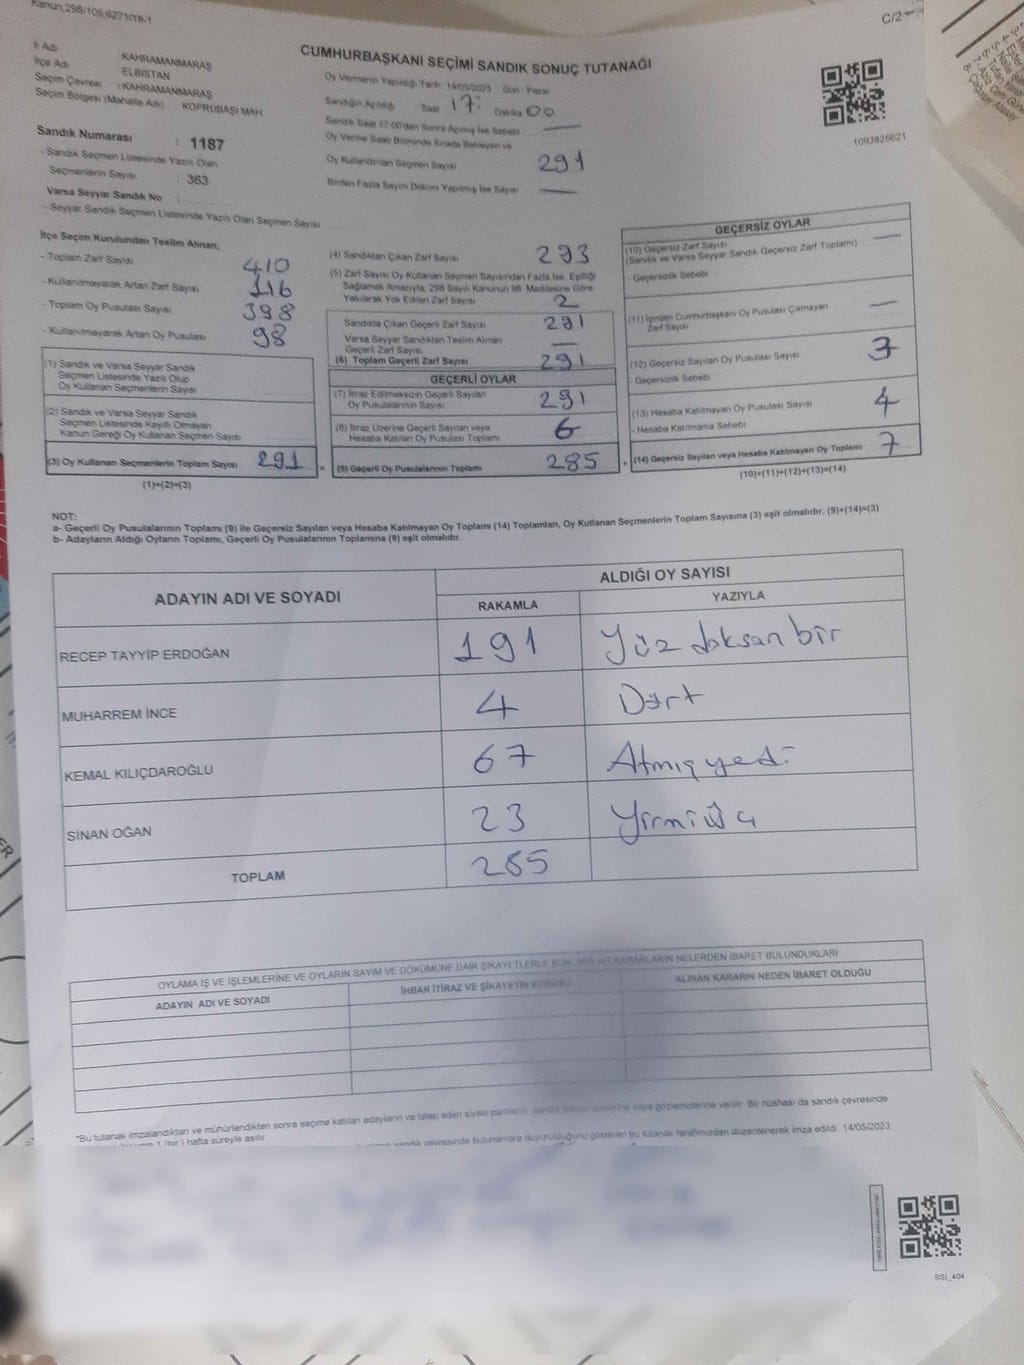 Kanun;298/105,6271/18-1
C/2
CUMHURBAŞKANI SEÇİMİ SANDIK SONUÇ TUTANAĞI
İl Adı KAHRAMANMARAŞ
İlçe Adı ELBİSTAN
Seçim Çevresi : KAHRAMANMARAŞ
Seçim Bölgesi (Mahalle Adı) KÖPRÜBAŞI MAH
Sandık Numarası : 1187
- Sandık Seçmen Listesinde Yazılı Olan
Seçmenlerin Sayısı : 363
Varsa Seyyar Sandık No :
- Seyyar Sandık Seçmen Listesinde Yazılı Olan Seçmen Sayısı
Oy Vermenin Yapıldığı Tarih 14/05/2023 Gün Pazar
Sandığın Açıldığı Saat 17: Dakika 00
Sandık Saat 17:00'dan Sonra Açılmış İse Sebebi —
Oy Verme Saati Bitiminde Sırada Bekleyen ve
Oy Kullandırılan Seçmen Sayısı 291
Birden Fazla Sayım Döküm Yapılmış İse Sayısı —
1093825621
İlçe Seçim Kurulundan Teslim Alınan;
- Toplam Zarf Sayısı 410
- Kullanılmayarak Artan Zarf Sayısı 116
- Toplam Oy Pusulası Sayısı 398
- Kullanılmayarak Artan Oy Pusulası 98
(1) Sandık ve Varsa Seyyar Sandık
Seçmen Listesinde Yazılı Olup
Oy Kullanan Seçmenlerin Sayısı
(2) Sandık ve Varsa Seyyar Sandık
Seçmen Listesinde Kayıtlı Olmayan
Kanun Gereği Oy Kullanan Seçmen Sayısı
(3) Oy Kullanan Seçmenlerin Toplam Sayısı 291
(1)+(2)=(3)
(4) Sandıktan Çıkan Zarf Sayısı 293
(5) Zarf Sayısı Oy Kullanan Seçmen Sayısından Fazla İse, Eşitliği
Sağlamak Amacıyla, 298 Sayılı Kanunun 98. Maddesine Göre
Yakılarak Yok Edilen Zarf Sayısı 2
Sandıkta Çıkan Geçerli Zarf Sayısı 291
Varsa Seyyar Sandıktan Teslim Alınan
Geçerli Zarf Sayısı —
(6) Toplam Geçerli Zarf Sayısı 291
GEÇERLİ OYLAR
(7) İtiraz Edilmeksizin Geçerli Sayılan
Oy Pusulalarının Sayısı 291
(8) İtiraz Üzerine Geçerli Sayılan veya
Hesaba Katılan Oy Pusulası Toplamı 6
= (9) Geçerli Oy Pusulalarının Toplamı 285
GEÇERSİZ OYLAR
(10) Geçersiz Zarf Sayısı —
(Sandık ve Varsa Seyyar Sandık Geçersiz Zarf Toplamı)
- Geçersizlik Sebebi
(11) İçinden Cumhurbaşkanı Oy Pusulası Çıkmayan —
Zarf Sayısı
(12) Geçersiz Sayılan Oy Pusulası Sayısı 3
- Geçersizlik Sebebi
(13) Hesaba Katılmayan Oy Pusulası Sayısı 4
- Hesaba Katılmama Sebebi
+ (14) Geçersiz Sayılan veya Hesaba Katılmayan Oy Toplamı 7
(10)+(11)+(12)+(13)=(14)
NOT:
a- Geçerli Oy Pusulalarının Toplamı (9) ile Geçersiz Sayılan veya Hesaba Katılmayan Oy Toplamı (14) Toplamları, Oy Kullanan Seçmenlerin Toplam Sayısına (3) eşit olmalıdır. (9)+(14)=(3)
b- Adayların Aldığı Oyların Toplamı, Geçerli Oy Pusulalarının Toplamına (9) eşit olmalıdır.
ADAYIN ADI VE SOYADI ALDIĞI OY SAYISI
RAKAMLA YAZIYLA
RECEP TAYYİP ERDOĞAN 191 Yüz doksan bir
MUHARREM İNCE 4 Dört
KEMAL KILIÇDAROĞLU 67 Atmış yedi
SİNAN OĞAN 23 Yirmi üç
TOPLAM 285
OYLAMA İŞ VE İŞLEMLERİNE VE OYLARIN SAYIM VE DÖKÜMÜNE DAİR ŞİKAYETLERLE BUNLARA AİT KARARLARIN NELERDEN İBARET BULUNDUKLARI
ADAYIN ADI VE SOYADI İHBAR İTİRAZ VE ŞİKAYETİN KONUSU ALINAN KARARIN NEDEN İBARET OLDUĞU
*Bu tutanak imzalandıktan ve mühürlendikten sonra seçime katılan adayların ve talep eden siyasi partilerin sandık kurulu üyelerine veya gözlemcilerine verilir. Bir nüshası da sandık çevresinde
1 (bir ) hafta süreyle asılır.
sandık çevresinde bulunanlara duyurulduğunu gösteren bu tutanak tarafımızdan düzenlenerek imza edildi. 14/05/2023
SSI_404